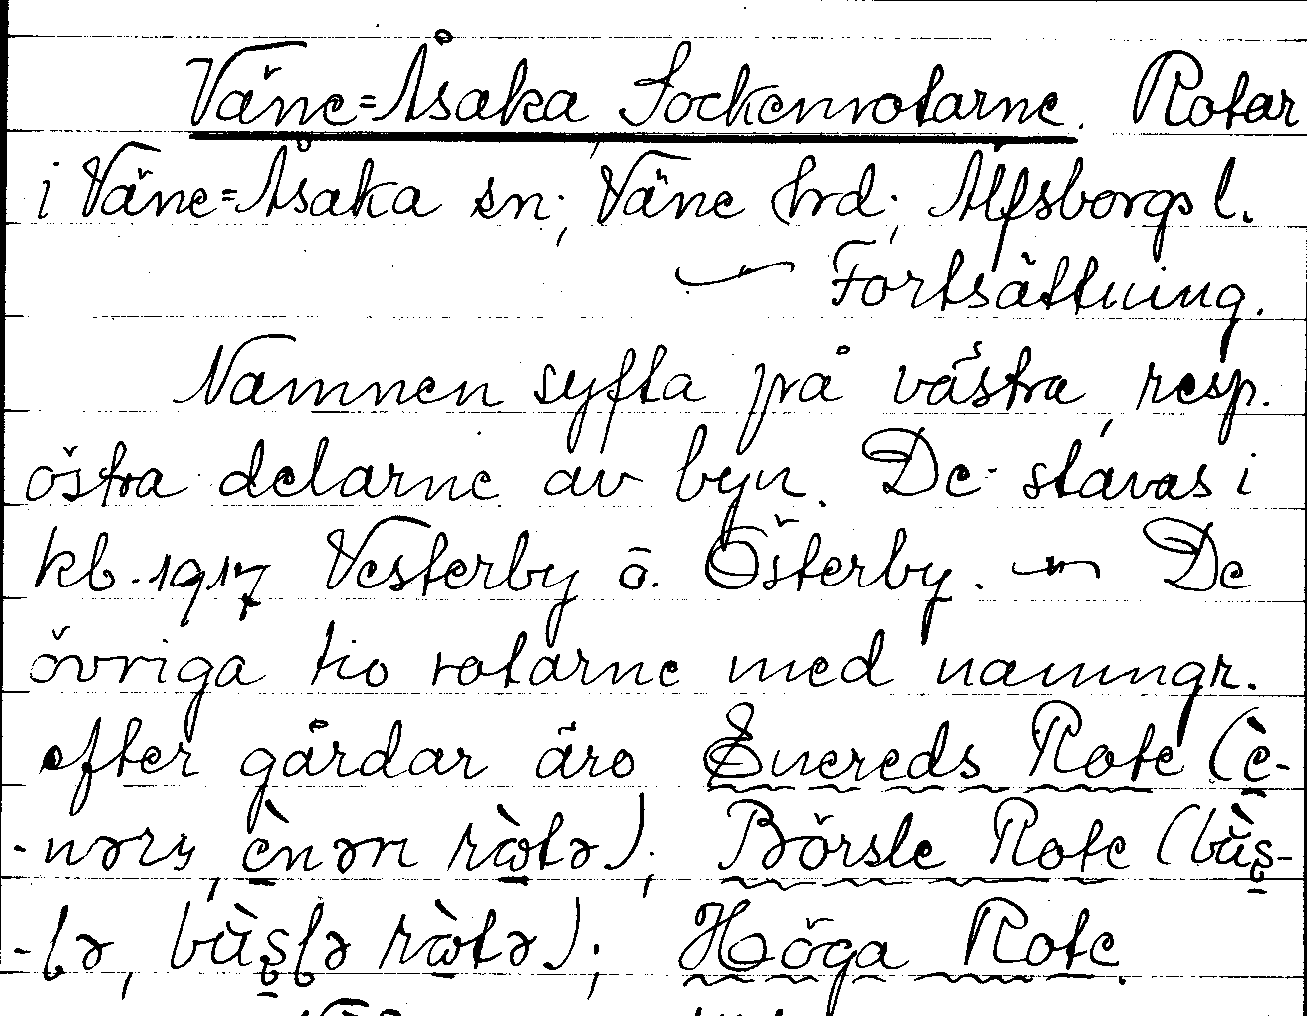 Väne=Åsaka Sockenrotarne. Rotar
i Väne=Åsaka sn; Väne hrd; Älfsborgs l.
— Fortsättning.
Namnen syfta på västra, resp.
östra delarne av byn. De stavas i
kb. 1917 Vesterby o. Österby. — De
övriga tio rotarne med namngr.
efter gårdar äro Enereds Rote (è-
-nərs, ènərs rὼtə); Börsle Rote (bùʂ-
-lə, bùʂlə rὼtə); Höga Rote.